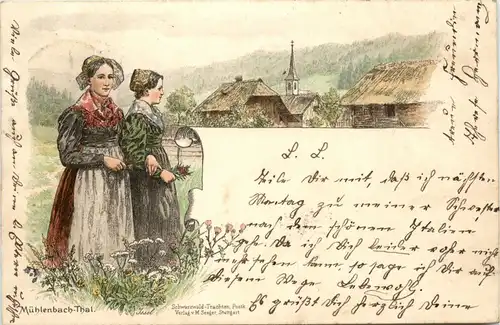 L. L.
Teile Dir mit, daß ich nächsten
Montag zu meiner Schwester
nach dem schönen Italien
geh. Da ich Dich leider voher nicht
mehr sehen kann, so sage ich Dir auf
diesem Wege Lebewohl.
Es grüßt Dich herzlich Deine
Freundin
Viele Grüße
Mühlenbach-Thal.
Schwarzwald-Trachten, Postk.
Verlag v. M. Seeger, Stuttgart